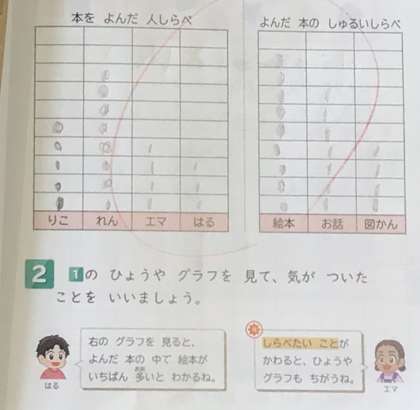 本を よんだ 人しらべ
りこ れん エマ はる
よんだ 本の しゅるいしらべ
絵本 お話 図かん
2 1の ひょうや グラフを 見て、気が ついた
ことを いいましょう。
右の グラフを 見ると、
よんだ 本の 中で 絵本が
いちばん 多いと わかるね。
はる
しらべたい ことが
かわると、ひょうや
グラフも ちがうね。
エマ